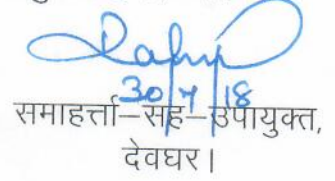 30/7/18
समाहर्त्ता–सह–उपायुक्त,
देवघर।